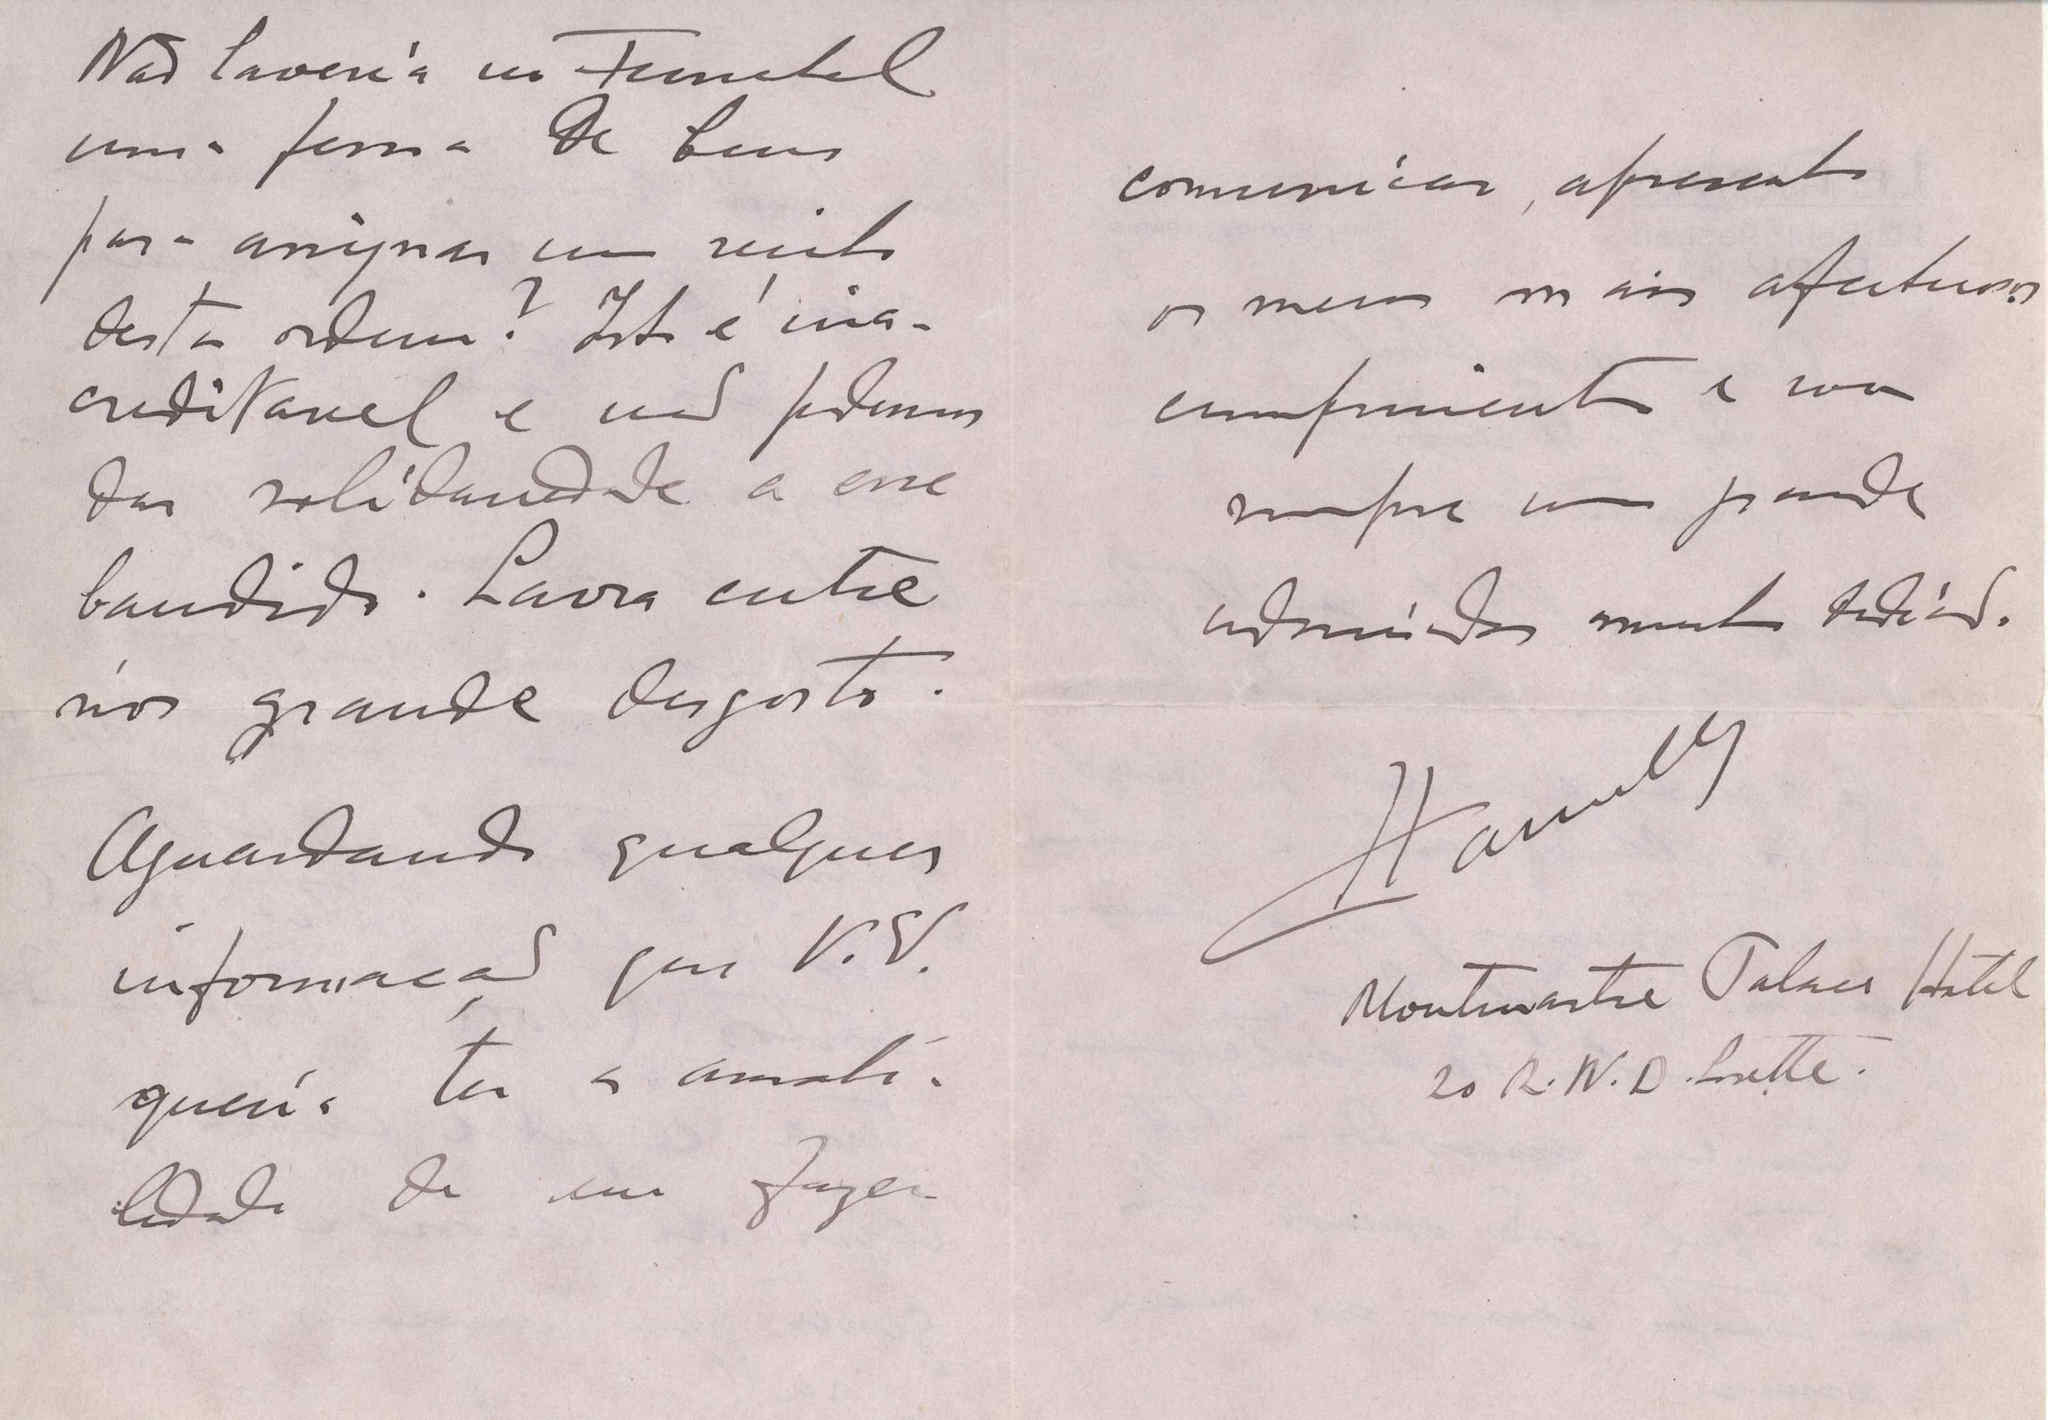 Não haveria no Funchal
uma forma de
para assignar um recibo
desta ordem? Isto é ina-
creditavel e não podemos
dar solidariedade a esse
bandido. Lavra entre
nós grande desgosto.
Aguardando qualquer
informação que V. Eª.
queira ter a amabi-
lidade de me fazer
comunicar, apresento
os meus mais afectuosos
cumprimentos e sou
sempre um grande
admirador muito dedicado.
Montmartre Palace Hotel
20 R. N. D. Lorette.